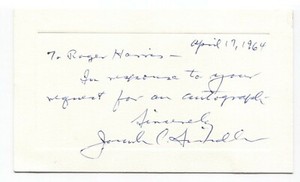 April 17, 1964
To Roger Harris –
In response to your
request for an autograph.
Sincerely
Joseph C.